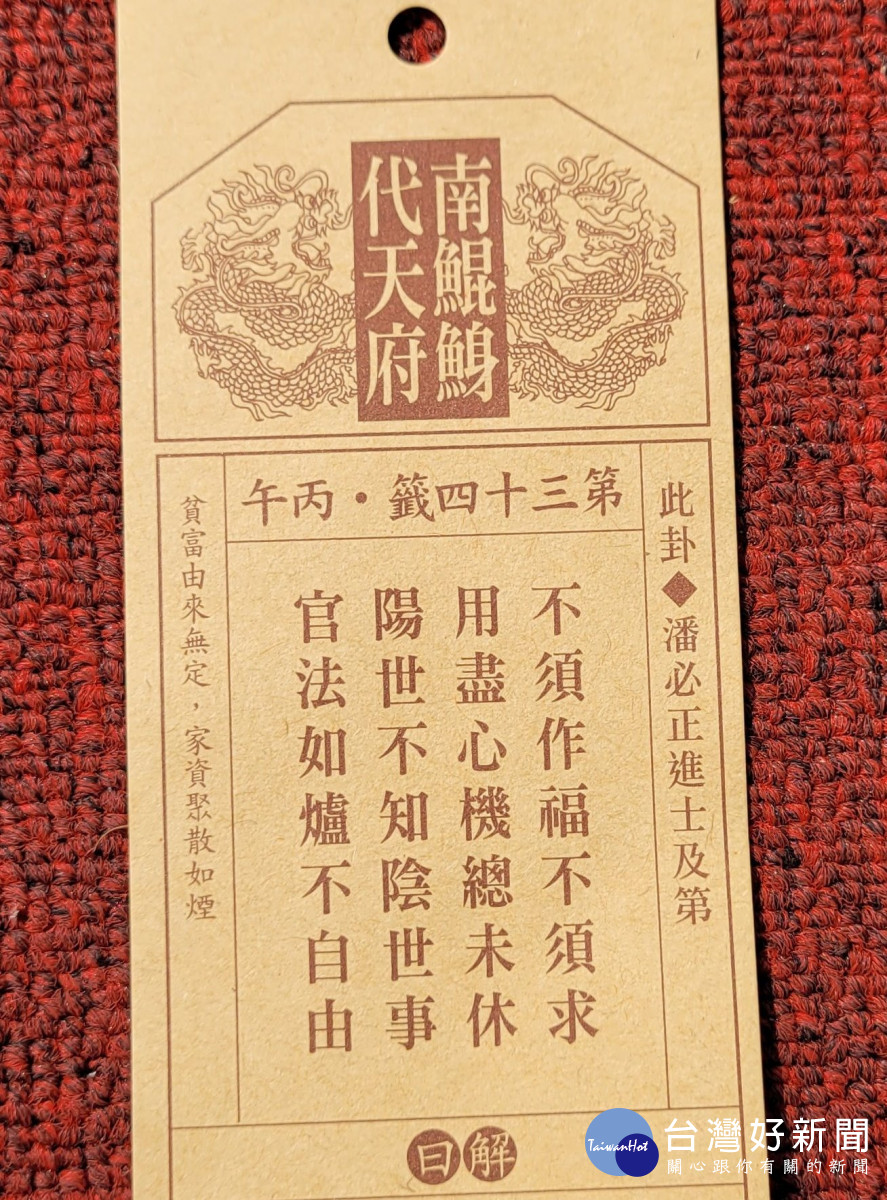 南鯤鯓
代天府
第三十四籤・丙午
此卦◆潘必正進士及第
不須作福不須求
用盡心機總未休
陽世不知陰世事
官法如爐不自由
貧富由來無定，家資聚散如煙
解曰
TaiwanHot
台灣好新聞
關心跟你有關的新聞